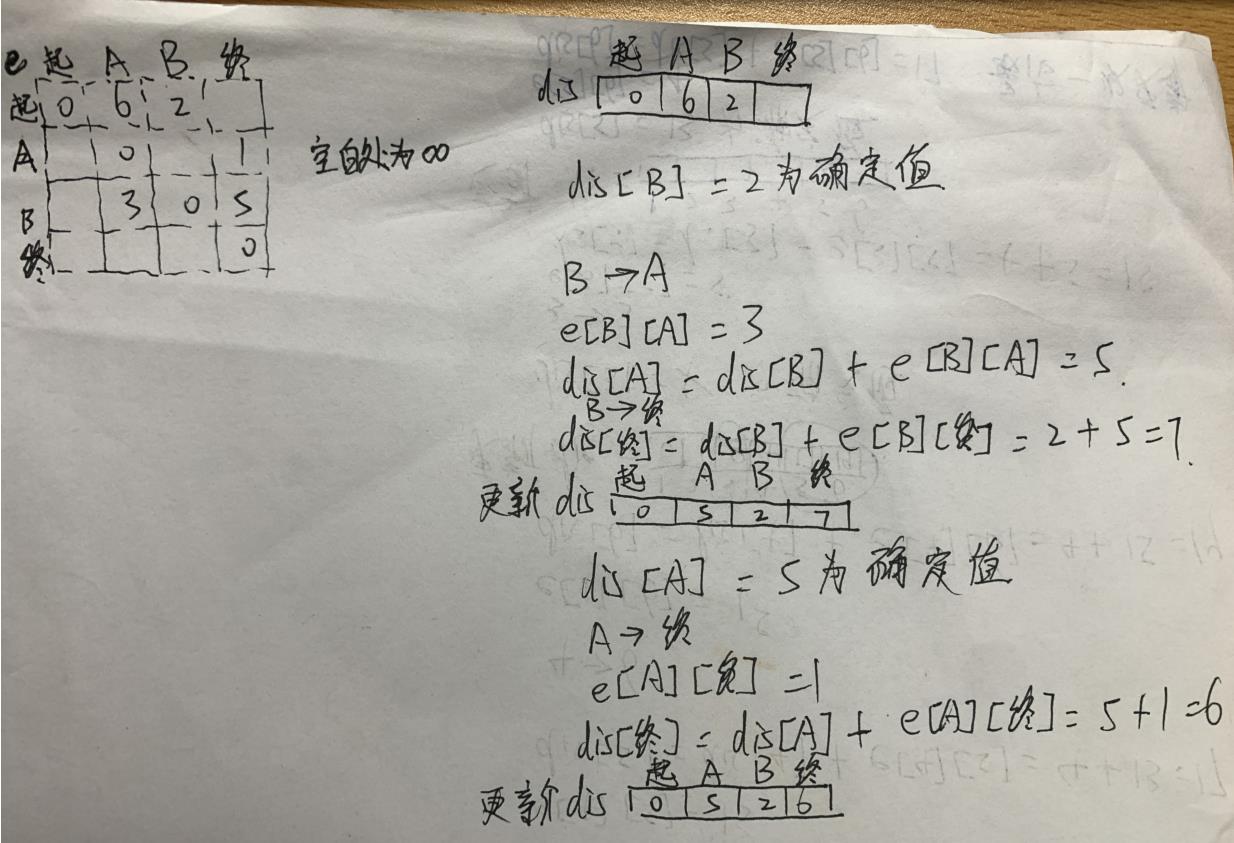 e 起 A B 终
起 0 6 2
A 0 1
B 3 0 5
终 0
空白处为∞
起 A B 终
dis 0 6 2
dis[B] = 2 为确定值
B → A
e[B][A] = 3
dis[A] = dis[B] + e[B][A] = 5.
B → 终
dis[终] = dis[B] + e[B][终] = 2 + 5 = 7.
起 A B 终
更新 dis 0 5 2 7
dis[A] = 5 为确定值
A → 终
e[A][终] = 1
dis[终] = dis[A] + e[A][终] = 5 + 1 = 6
起 A B 终
更新 dis 0 5 2 6